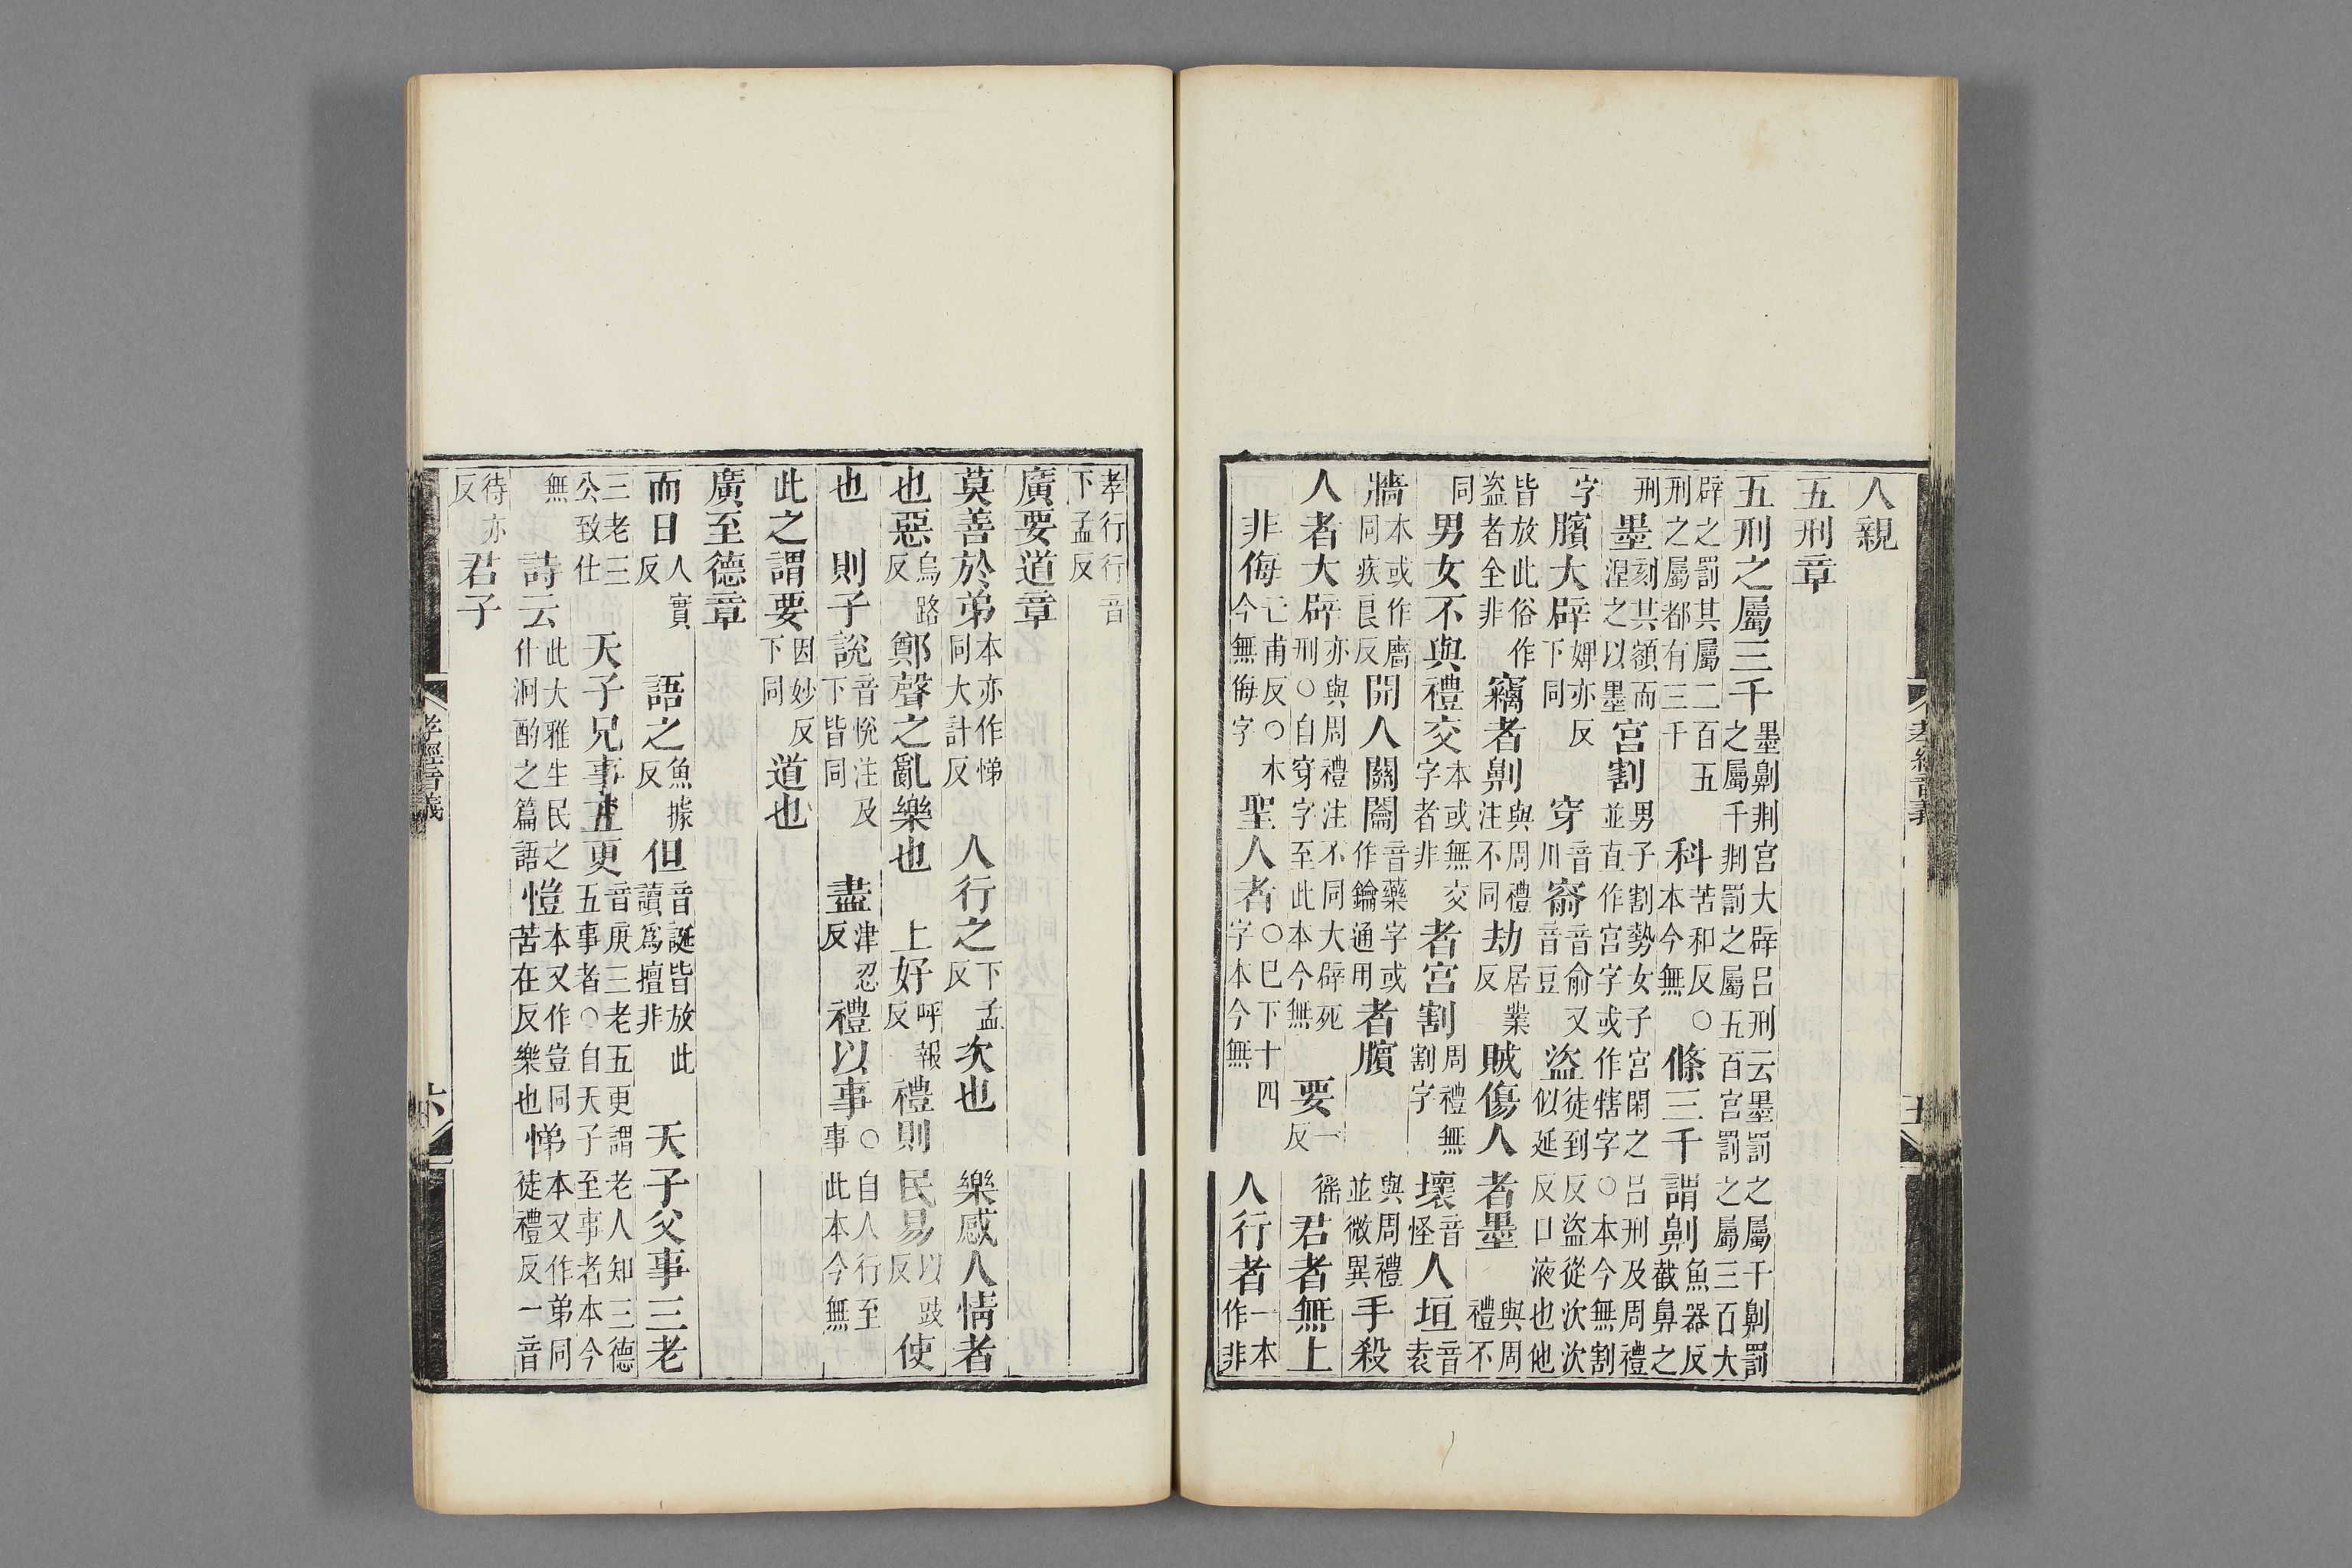 人親
五刑章
五刑之屬三千墨劓剕宮大辟呂刑云墨罰之屬千劓罰之屬千剕罰之屬五百宮罰之屬三百大
辟之罰其屬二百五刑之屬都有三千科苦和反○本今無條三千謂劓魚器反截鼻之
刑墨刻其額而涅之以墨宮割男子割勢女子宮閑之呂刑及周禮並直作宮字或作犗字○本今無割
字臏大辟婢亦反下同穿音川窬音俞又音豆盜徒到反盜從次次似延反口液也他
皆放此俗作盗者全非竊者劓與周禮注不同劫居業反賊傷人者墨與周禮不
同男女不與禮交本或無交字者非者宮割周禮無割字壞音怪人垣音袁
牆本或作廧同疾良反開人關闟音藥字或作鑰通用者臏與周禮並微異手殺
人者大辟亦與周禮注不同大辟死刑○自穿字至此本今無要一徭反君者無上
非侮亡甫反○本今無侮字聖人者○巳下十四字本今無人行者一本作非
孝經音義
五
孝行行音下孟反
廣要道章
莫善於弟本亦作悌同大計反人行之下孟反次也樂感人情者
也惡烏路反鄭聲之亂樂也上好呼報反禮則民易以豉反使
也則子說音悅注及下皆同盡津忍反禮以事○自人行至事此本今無
此之謂要因妙反下同道也
廣至德章
而日人實反語之魚據反但音誕皆放此讀爲擅非天子父事三老
三老三公致仕天子兄事五更音庚三老五更謂老人知三德五事者○自天子至事者本今
無詩云此大雅生民之什泂酌之篇語愷本又作豈同苦在反樂也悌本又作弟同徒禮反一音
待亦反君子
孝經音義
六